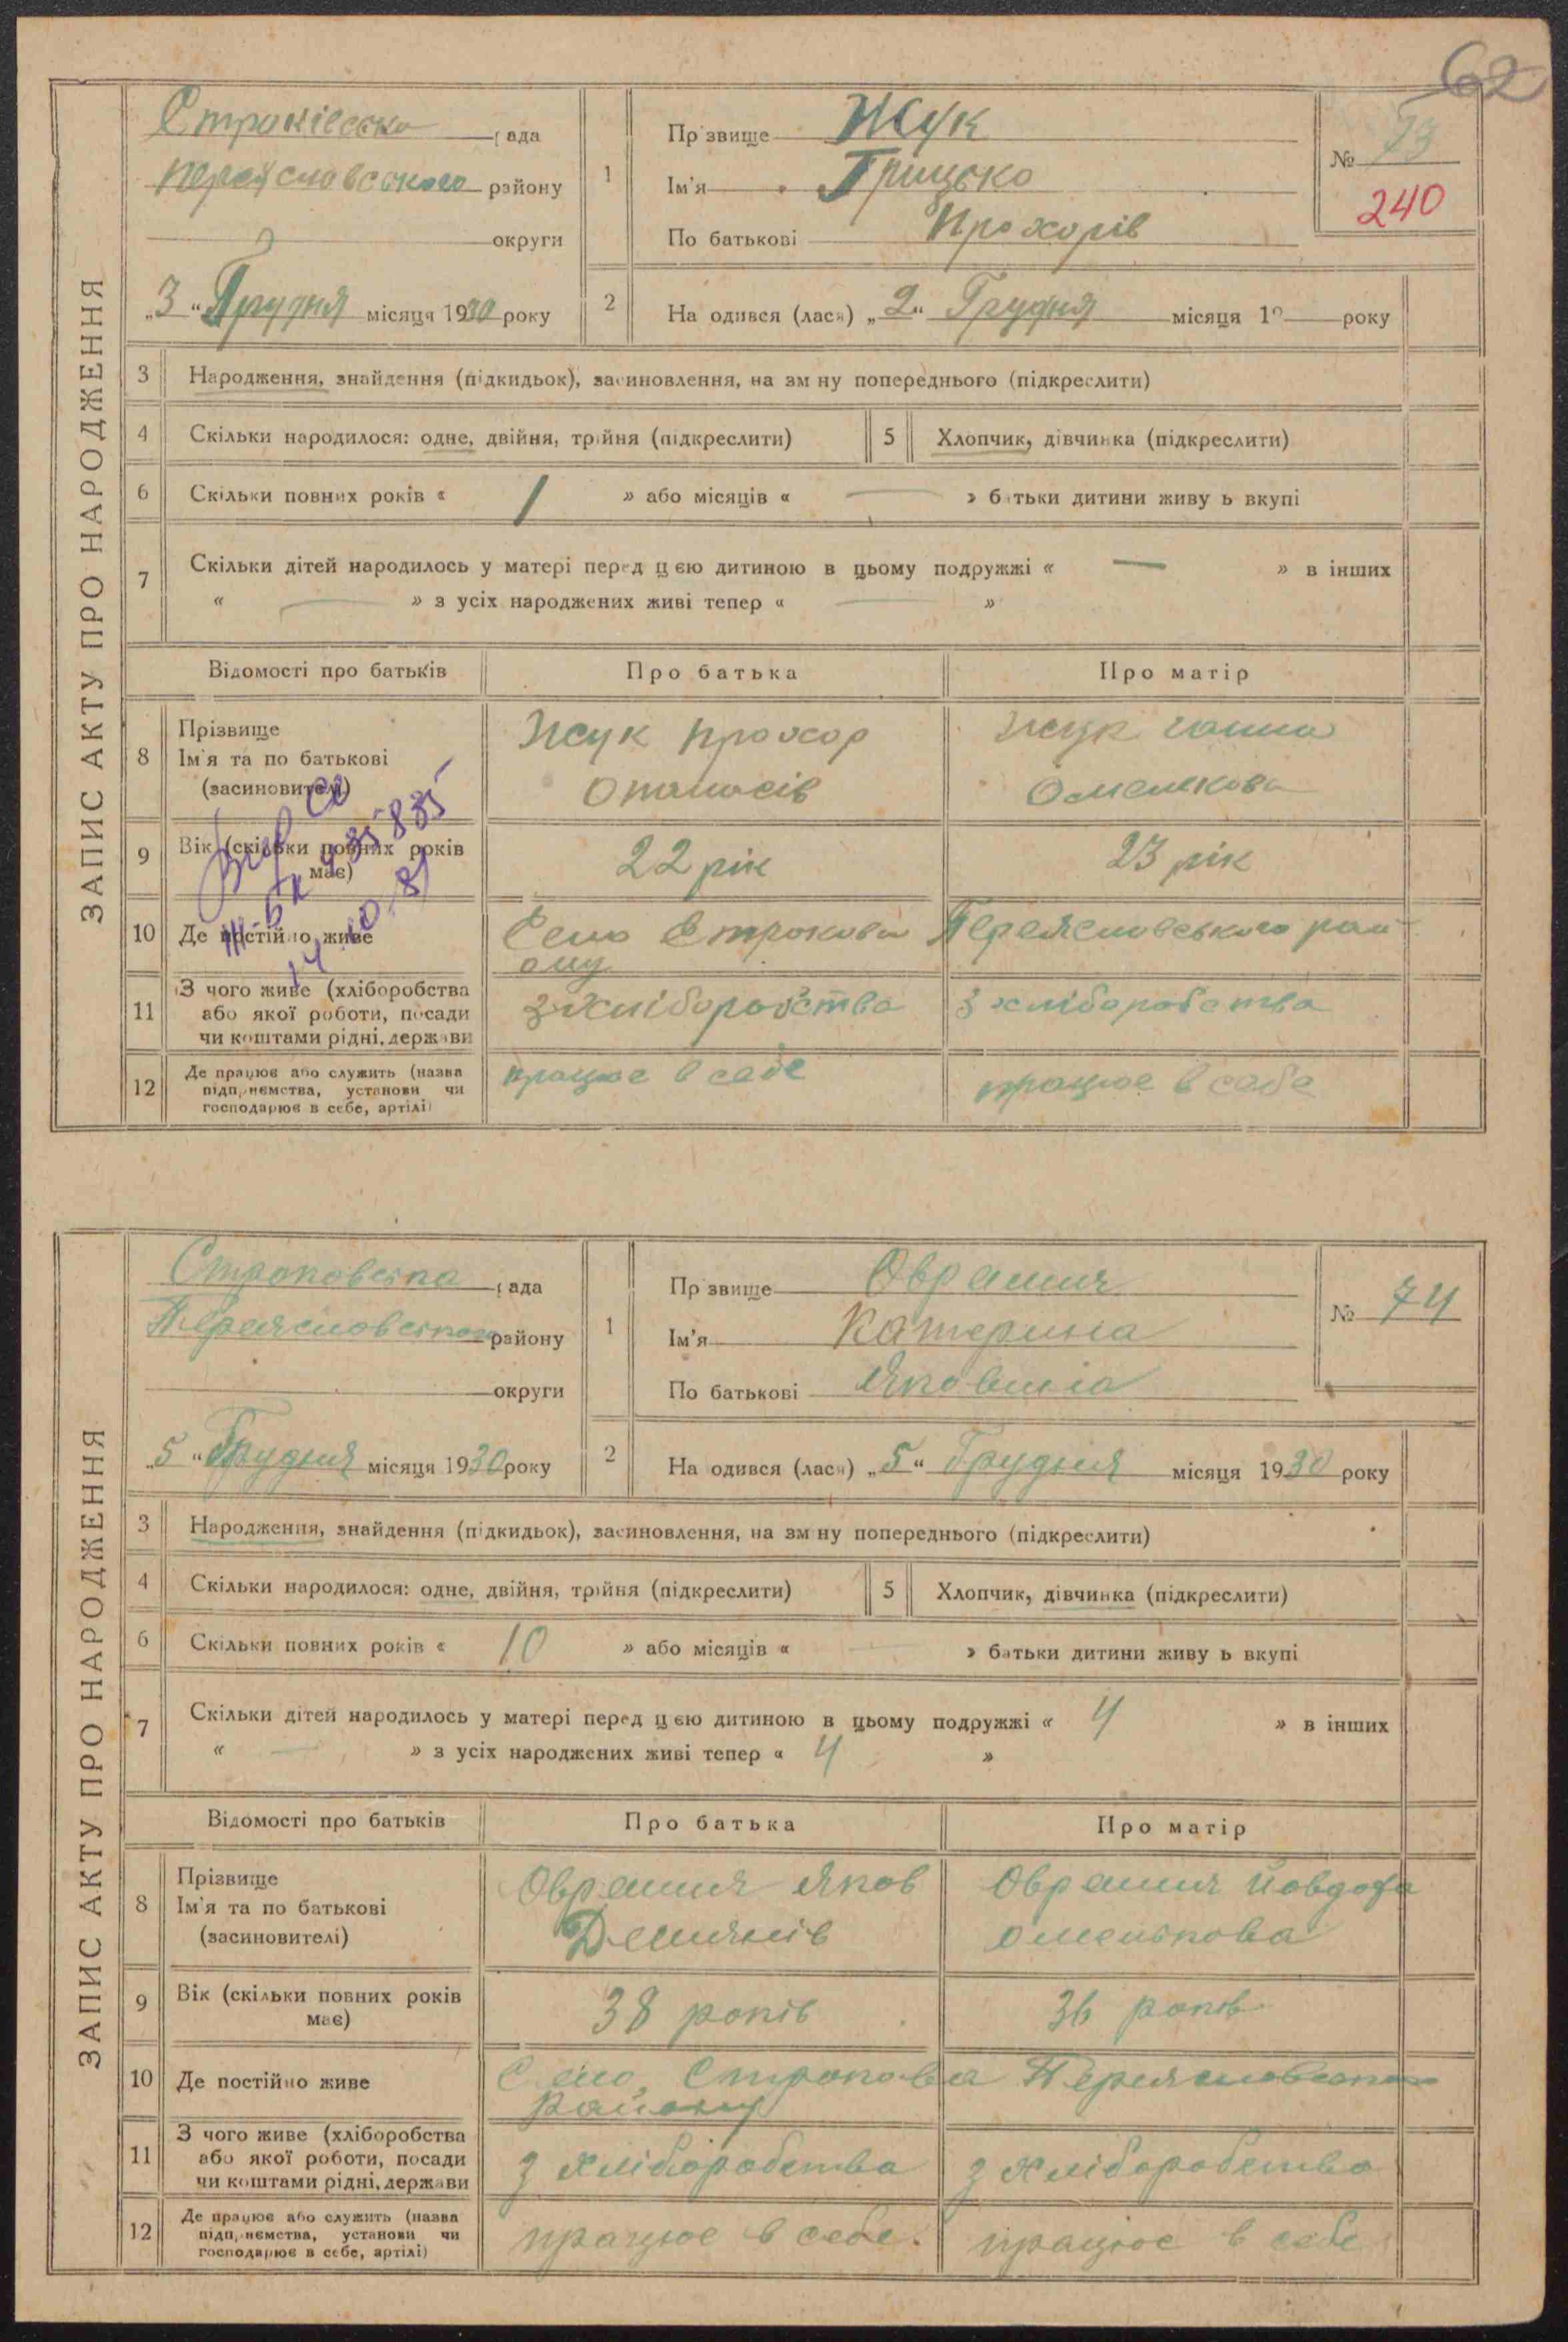 62
ЗАПИС АКТУ ПРО НАРОДЖЕННЯ
Строківська рада
Переяславського району
округи
„3“ Грудня місяця 1930 року
1
Прізвище Жук
Ім'я Грицько
По батькові Прохорів
№ 73
240
2 На одився (лася) „2“ Грудня місяця 19 року
3 Народження, знайдення (підкидьок), засиновлення, на зм ну попереднього (підкреслити)
4 Скільки народилося: одне, двійня, трійня (підкреслити)
5 Хлопчик, дівчинка (підкреслити)
6 Скільки повних років « 1 » або місяців « — » батьки дитини живу ь вкупі
7 Скільки дітей народилось у матері перед цією дитиною в цьому подружжі « — » в інших
« — » з усіх народжених живі тепер « — »
Відомості про батьків Про батька Про матір
8 Прізвище Ім'я та по батькові (засиновителі)
Жук Прохор Опанасів
Жук Ганна Омелькова
9 Вік (скільки повних років має)
22 рік
23 рік
10 Де постійно живе
Село Строкова Переяславського рай
ону
11 З чого живе (хліборобства або якої роботи, посади чи коштами рідні, держави
З хліборобства
З хліборобства
12 Де працює або служить (назва підприємства, установи чи господарює в себе, артілі)
працює в себе
працює в себе
ЗАПИС АКТУ ПРО НАРОДЖЕННЯ
Строковська рада
Переясловського району
округи
„5“ Грудня місяця 1930 року
1
Прізвище Оврамия
Ім'я Катерина
По батькові Яковина
№ 74
2 На одився (лася) „5“ Грудня місяця 1930 року
3 Народження, знайдення (підкидьок), засиновлення, на зм ну попереднього (підкреслити)
4 Скільки народилося: одне, двійня, трійня (підкреслити)
5 Хлопчик, дівчинка (підкреслити)
6 Скільки повних років « 10 » або місяців « — » батьки дитини живу ь вкупі
7 Скільки дітей народилось у матері перед цією дитиною в цьому подружжі « 4 » в інших
« — » з усіх народжених живі тепер « 4 »
Відомості про батьків Про батька Про матір
8 Прізвище Ім'я та по батькові (засиновителі)
Оврамия Яков Демянів
Оврамия Йовдоха Омелькова
9 Вік (скільки повних років має)
38 років
36 років
10 Де постійно живе
Село Строкова Переясловського
Району
11 З чого живе (хліборобства або якої роботи, посади чи коштами рідні, держави
З хліборобства
З хліборобства
12 Де працює або служить (назва підприємства, установи чи господарює в себе, артілі)
працює в себе.
працює в себе